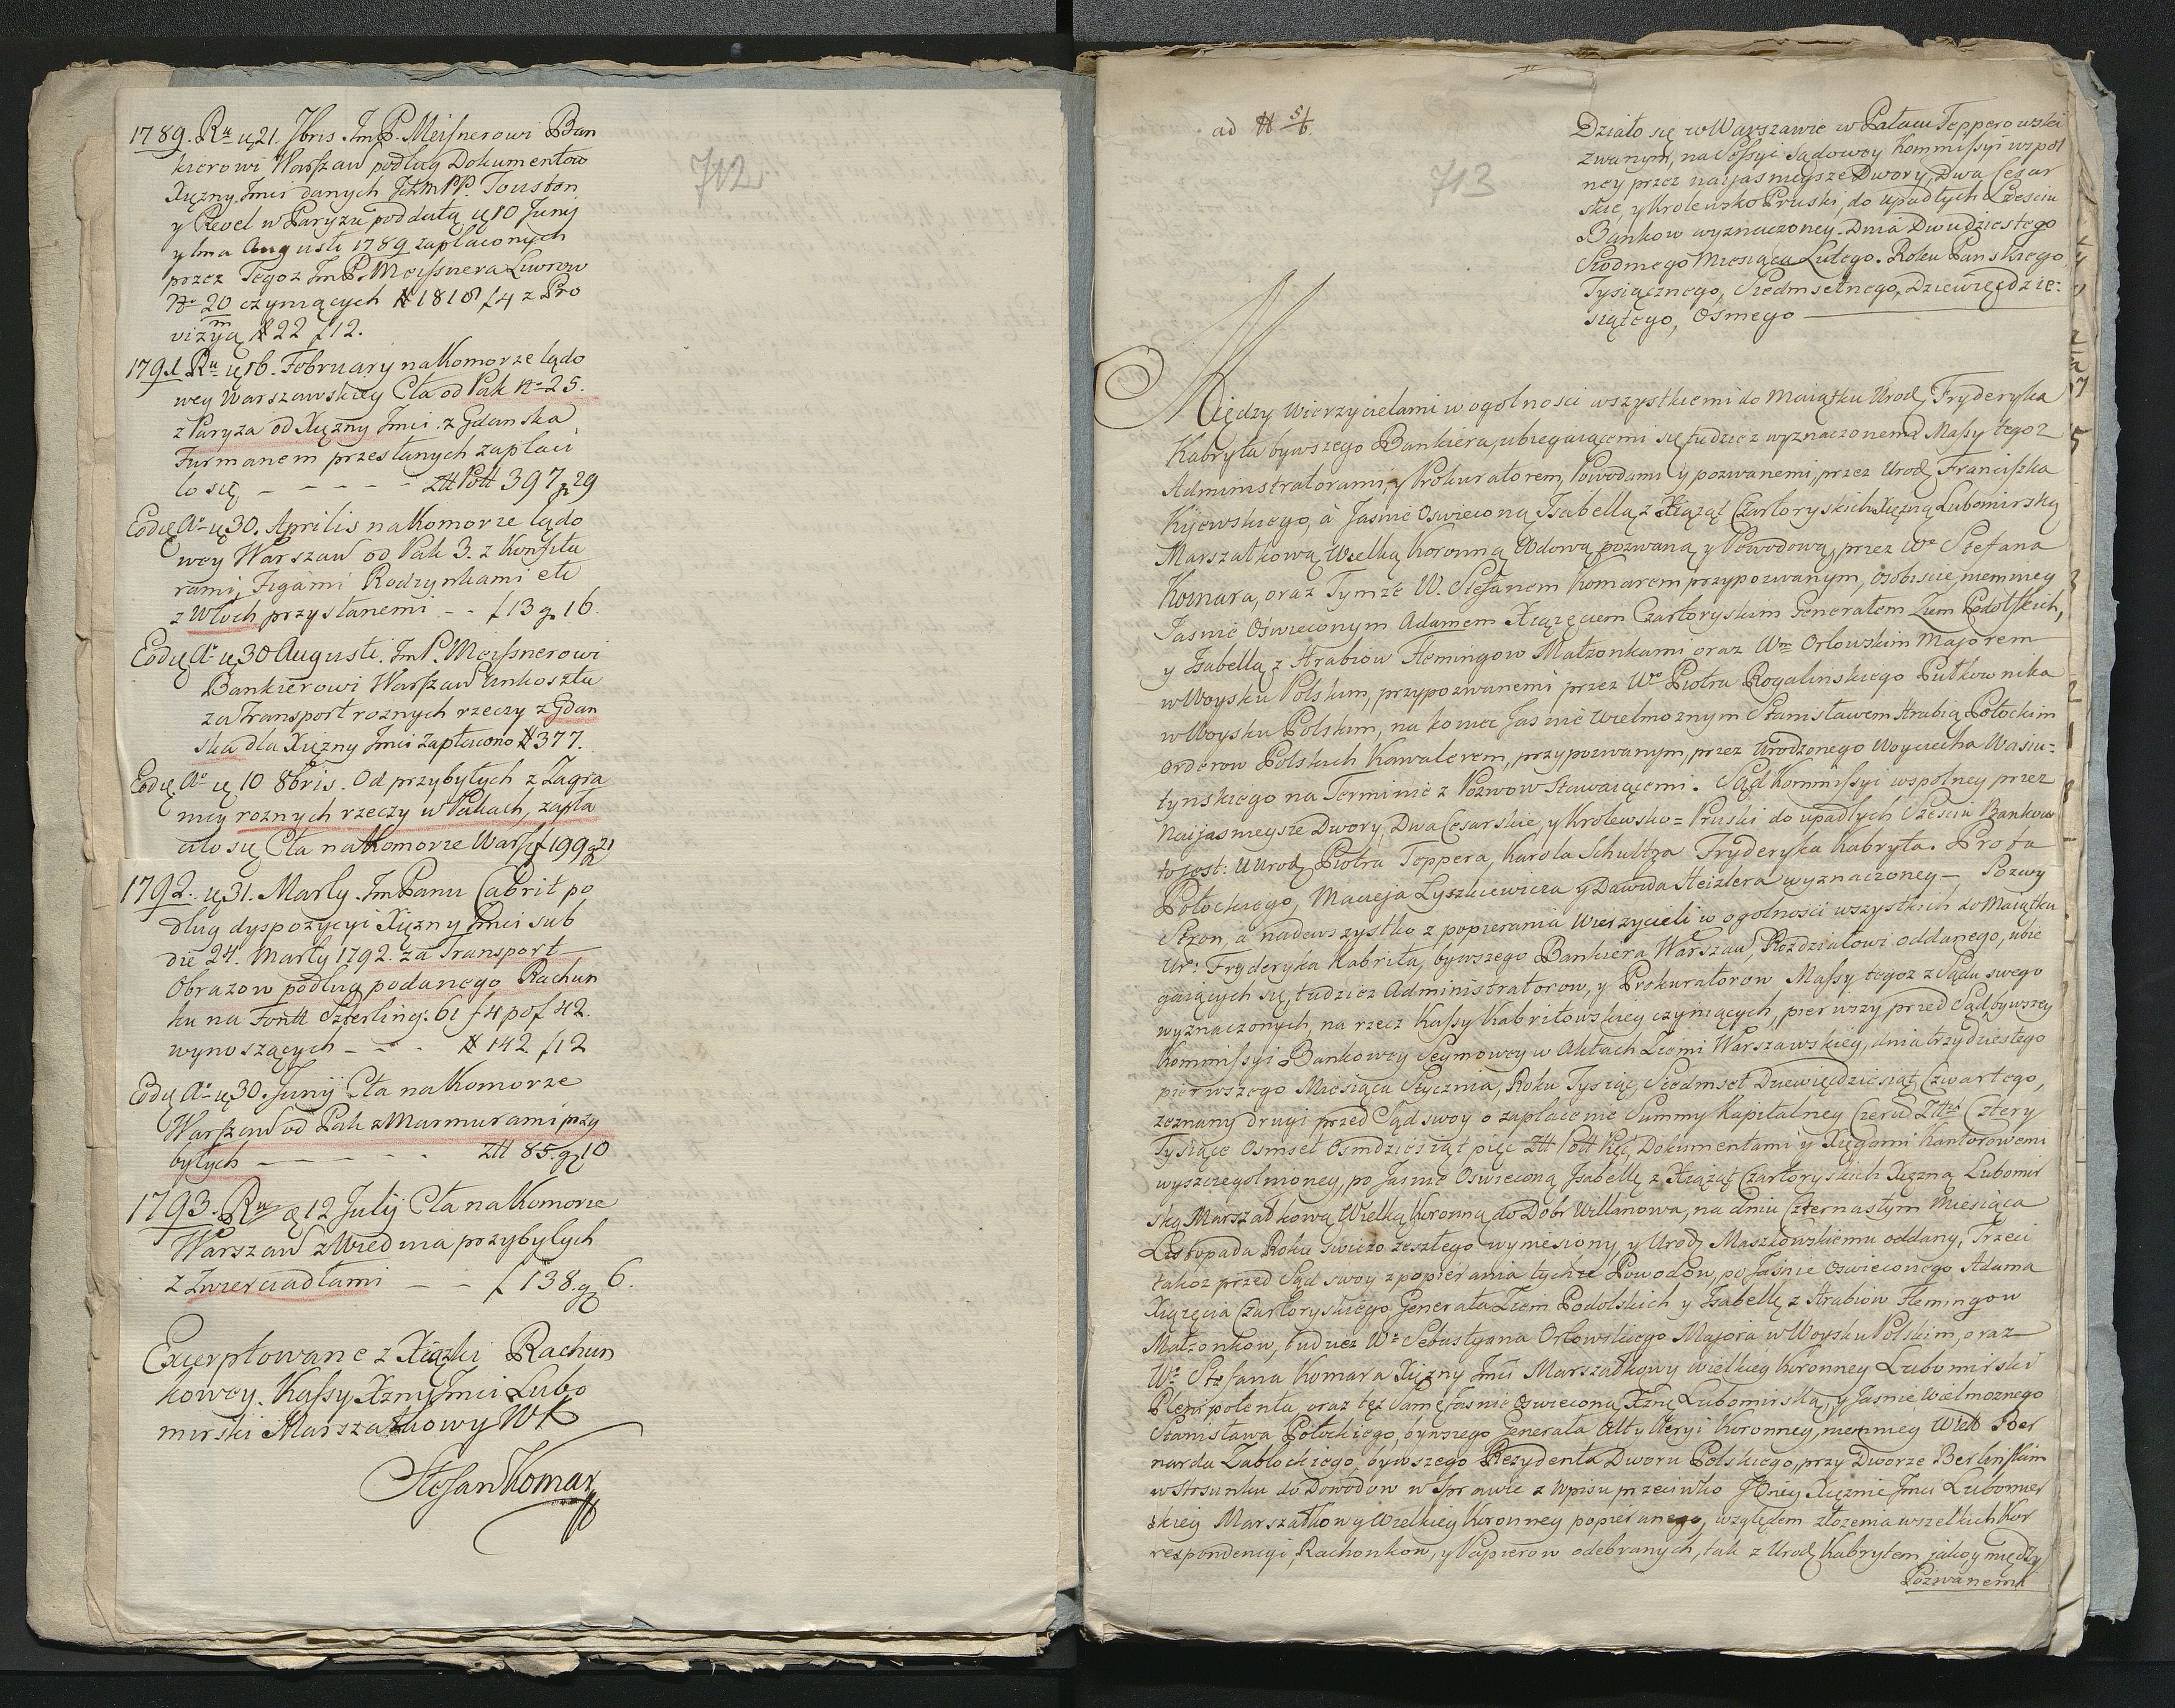 1789. Ru ą 21. Jbris. Im P. Meisnerowi Ban
kierowi Warszaw podług Dokumentow
Xięzny Jmci danych JchmPP. Touston
y Revel w Paryzu pod datą ą 10 Junij
y 1ma Augusti 1789 zapłaconych
przez Tegoz Im P. Meissnera Liwrow
No 20 czyniących # 1818 f 4 z Pro
m
wizyą # 22 f 12.
1791 Ru ą 16. February na Komorze lądo
wey Warszawskiey Cła od Pak No 25.
z Paryza od Xięzny Jmci z Gdanska
Furmanem przesłanych zapłaci
ło się - - - - - ztt Poll 397 g 29
Eodę Ao ą 30. Aprilis na Komorze lądo
wey Warszaw od Pak 3. z Konfitu
rami, Figami Rodzynkami etc
z Włoch przysłanemi - - f 13 g 16.
Eodę Ao ą 30 Augusti. Im P. Meissnerowi
Bankierowi Warszaw Unkosztu
za Transport roznych rzeczy z Gdan
ska dla Xięzny Jmci zapłacono # 377.
Eodę Ao ą 10 8bris. Od przybyłych z Zagra
nicy roznych rzeczy w Pakach, zapła
ciło się Cła na Komorze Warsz f 199 g 21
1792. ą 31. Marty. Im Panu Cabrit po
dług dyspozycyi Xięzny Jmci sub
die 24. Marty 1792. za Transport
Obrazow podług podanego Rachun
ku na Fontt Szterling: 61 f 4 po f 42.
wynoszących - - - # 142 f 12
Eodę Ao ą 30. Junij Cła na Komorze
Warszaw od Pak z Marmurami przy
byłych - - - - - ztt 85. g 10
1793. Ru ą 12 Julij Cła na Komorze
Warszaw z Wiednia przybyłych
z Zwierciadłami - - f 138. g 6.
Excerptowane z Xiązki Rachun
kowey. Kassy Xzny Jmci Lubo
mirski Marszałkowy WK
Stefan Komar
712.
ad #
713
Działo się w Warszawie w Pałacu Tepperowski
zwanym, na Sessyi Sądowey Kommissyi wspol
ney przez nayjasnieysze Dwory, Dwa Cesar
skie, y Krolewsko Pruski, do upadłych Szesciu
Bankow wyznaczoney. Dnia Dwudziestego
Siodmego Miesiąca Lutego. Roku Panskiego
Tysiącznego, Siedmsetnego, Dziewięcdzie-
siątego, Osmego
Między Wierzycielami w ogolnosci wszystkiemi do Maiątku Urod Fryderyka
Kabryta bywszego Bankiera, ubiegaiącemi się tudziez wyznaczonemi Massy tegoz
Administratorami, y Prokuratorem, Powodami y pozwanemi, przez Urod Franciszka
Kijewskiego, a Jasnie Oswieconą Isabellą z Xiąząt Czartoryskich Xięzną Lubomirską
Marszałkową Wielką Koronną Wdową pozwaną y Powodową, przez Wo Stefana
Komara, oraz Tymże W. Stefanem Komarem przypozwanym, osobiscie, niemniey
Jasnie Oświeconym Adamem Xiązęciem Czartoryskim Generałem Ziem Podolskich,
y Isabellą z Hrabiow Flemingow Małzonkami oraz Wm Orłowskim Majorem
w Woysku Polskim, przypozwanemi przez Wo Piotra Rogalinskiego Pułkownika
w Woysku Polskim, na koniec Jasnie Wielmoznym Stanisławem Hrabią Potockim
Orderow Polskich Kawalerem, przypozwanym, przez Urodzonego Woyciecha Wasiu-
tynskiego na Terminie z Pozwow Stawaiącemi. Sąd Kommissyi wspolney przez
Nayjasnieysze Dwory, Dwa Cesarskie, y Krolewsko = Pruski do upadłych Szesciu Bankow
to jest: UUrod Piotra Teppera, Karola Schultza Fryderyka Kabryta. Prota
Potockiego, Macieja Lyszkiewicza y Dawida Heizlera wyznaczoney - Pozwy
Stron, a nadewszystko z popierania Wierzycieli w ogolnosci wszystkich do Maiątku
Ur: Fryderyka Kabrita, bywszego Bankiera Warszaw, Rozdziałowi oddanego, ubie
gaiących się, tudziez Administratorow, y Prokuratorow Massy tegoz z Sądu swego
wyznaczonych, na rzecz Kassy Kabritowskiey czyniących, pierwszy przed Sąd bywszey
Kommissyi Bankowey Seymowey w Aktach Ziemi Warszawskiey, dnia trzydziestego
pierwszego Miesiąca Stycznia, Roku Tysiąc Siedmset Dziewięcdziesiąt Czwartego,
zeznany drugi przed Sąd swoy o zapłacenie Summy Kapitalney Czerw Zttch Cztery
Tysiące Osmset Osmdziesiąt pięc Ztt Poll Pięc, Dokumentami y Xięgami Kantorowemi
wyszczegolnioney, po Jasnie Oswieconą Isabellę z Xiąząt Czartoryskich Xięzną Lubomir
ską Marszałkową Wielką Koronną do Dobr Willanowa, na dniu Czternastym Miesiąca
Listopada Roku swiezo zeszłego wyniesiony, y Urod Maszkowskiemu oddany, Trzeci
takoz przed Sąd swoy z popierania tychze Powodow, po Jasnie Oswieconego Adama
Xiązęcia Czartoryskiego Generała Ziem Podolskich y Isabellę z Hrabiow Flemingow
Małzonkow, tudziez Wo Sebastyana Orłowskiego Majora w Woysku Polskim, oraz
Wo Stefana Komara Xięzny Jmci Marszałkowy Wielkiey Koronney Lubomirski
Plenipotenta, oraz tęz Samę Jasnie Oswieconą Xznę Lubomirską, y Jasnie Wielmoznego
Stanisława Potockiego, bywszego Generała Artylleryi Koronney, niemniey Wiel Ber
narda Zabłockiego, bywszego Rezydenta Dworu Polskiego, przy Dworze Berlinskim
w Stosunku do Dowodow w Sprawie z Wpisu przeciwko JOiey Xięznie Jmci Lubomir
skiey Marszałkowy Wielkiey Koronney popieranego, względem złozenia wszelkich Kor
respondencyi, Rachonkow, y Papierow odebranych, tak z Urod Kabrytem jako y między
Pozwanemi